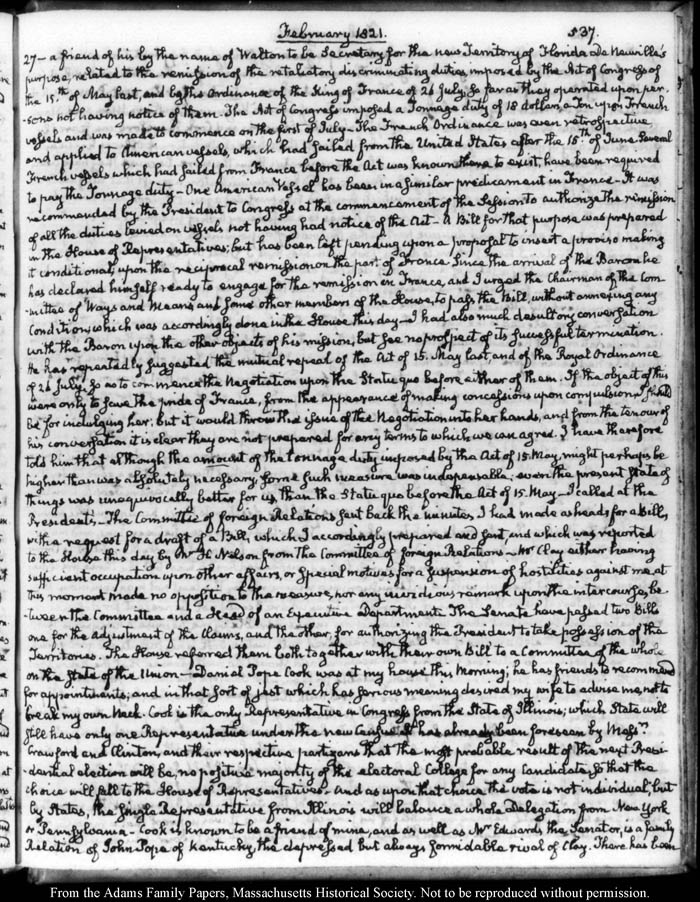 February 1821.
537.
27 - a friend of his by the name of Walton to be Secretary for the new Territory of Florida De Neuville's
purpose, related to the remission of the retaliatory discriminating duties imposed by the Act of Congress of
the 15.th of May last, and by the Ordinance of the King of France of 26 July, so far as they operated upon per-
-sons not having notice of them. The Act of Congress imposed a Tonnage duty of 18 dollars a Ton upon French
vessels and was made to commence on the first of July - The French Ordinance was even retrospective
and applied to American vessels, which had sailed from the United States after the 15.th of June. Several
French vessels which had sailed from France before the Act was known there to exist, have been required
to pay the Tonnage duty - One American Vessel has been in a similar predicament in France - It was
recommended by the President to Congress at the commencement of the Session to authorize the remission
of all the duties levied on vessels not having had notice of the Act - A Bill for that purpose was prepared
in the House of Representatives; but has been left pending upon a proposal to insert a proviso making
it conditional, upon the reciprocal remission on the part of France. Since the arrival of the Baron he
has declared himself ready to engage for the remission in France, and I urged the Chairman of the Com-
-mittee of Ways and Means and some other members of the House, to pass the Bill, without annexing any
Condition, which was accordingly done in the House this day - I had also much desultory conversation
with the Baron upon the other objects of his mission, but see no prospect of its successful termination
He has repeatedly suggested the mutual repeal of the Act of 15. May last, and of the Royal Ordinance
of 26 July, so as to commence the Negotiation upon the Statu quo before either of them. If the object of this
were only to save the pride of France, from the appearance of making concessions upon compulsion, I should
be for indulging her; but it would throw the issue of the Negotiation into her hands, and from the tenour of
his conversation it is clear they are not prepared for any terms to which we can agree. I have therefore
told him that although the amount of the tonnage duty imposed by the Act of 15 May, might perhaps be
higher than was absolutely necessary, some such measure was indispensable; even the present state of
things was unequivocally better for us, than the Statu quo before the Act of 15. May - I called at the
President's - The Committee of foreign Relations sent back the minutes I had made as heads for a Bill,
with a request for a draft of a Bill, which I accordingly prepared and sent, and which was reported
to the House this day by Mr. H. Nelson from the Committee of foreign Relations - Mr Clay either having
sufficient occupation upon other affairs, or special motives, for a suspension of hostilities against me, at
this moment made no opposition to the measure, nor any invidious remark upon the intercourse, be-
-tween the Committee and a Head of an Executive Department. The Senate have passed two Bills
one for the adjustment of the Claims, and the other, for authorizing the President to take possession of the
Territories. The House referred them both together with their own Bill to a Committee of the whole
on the State of the Union - Daniel Pope Cook was at my house this Morning; he has friends to recommend
for appointments; and in that sort of jest which has serious meaning desired my wife to advise me, not to
break my own Neck. Cook is the only Representative in Congress from the State of Illinois; which State will
still have only one Representative under the new Census. It has already been foreseen by Mess.rs
Crawford and Clinton, and their respective partizans that the most probable result of the next Presi-
-dential election will be, no positive majority of the electoral College for any Candidate, so that the
choice will fall to the House of Representatives. And as upon that choice the vote is not individual, but
by States, the single Representative from Illinois will balance a whole Delegation from New York
or Pennsylvania - Cook is known to be a friend of mine, and as well as Mr Edwards, the Senator, is a family
Relation of John Pope of Kentucky, the depressed but always formidable rival of Clay. There has been
From the Adams Family Papers, Massachusetts Historical Society. Not to be reproduced without permission.